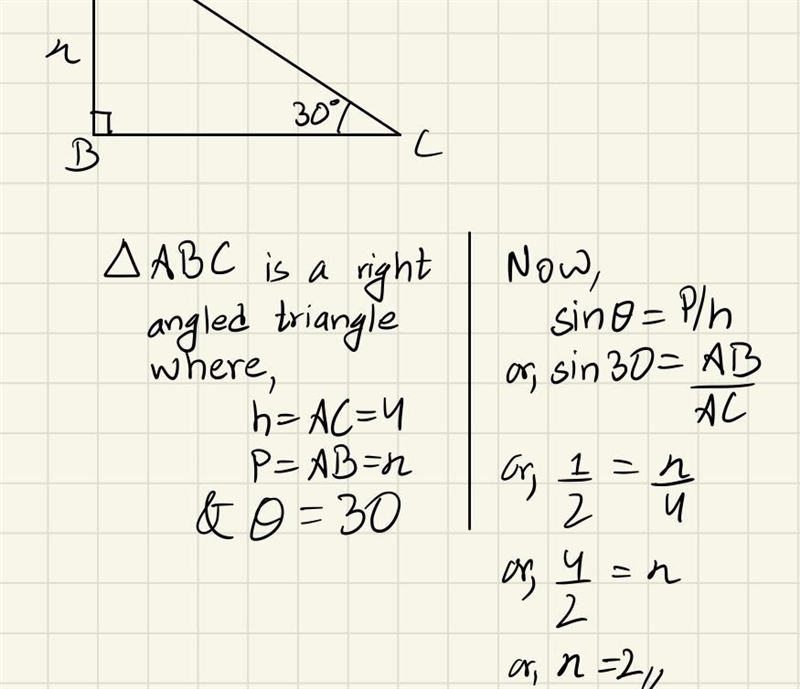 n
30°
B
C
△ABC is a right
angled triangle
where,
h = AC = 4
P = AB = n
& θ = 30
Now,
sinθ = P/h
or, sin30 = AB/AC
or, 1/2 = n/4
or, 4/2 = n
or, n = 2,,